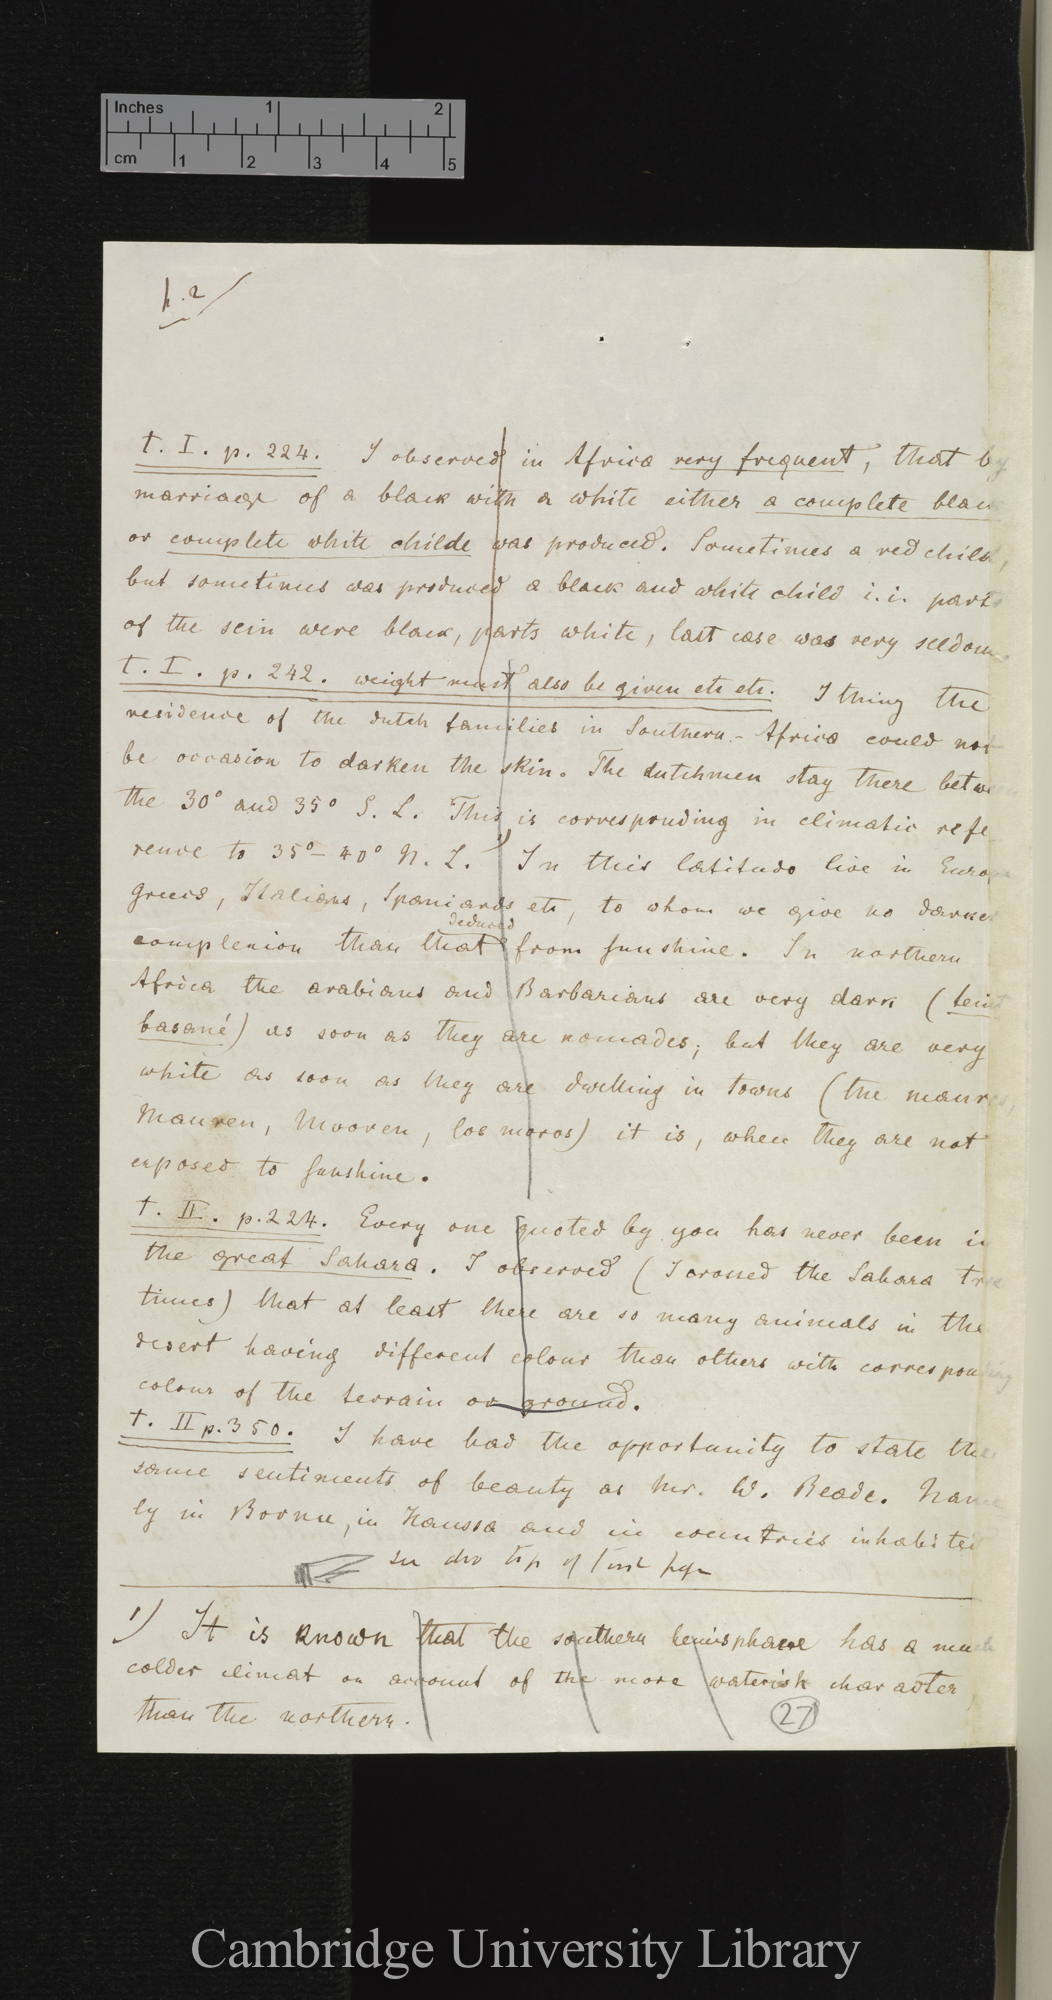 Inches 1 2
cm 1 2 3 4 5
p. 2
t. I. p. 224. I observed in Africa very frequent, that by
marriage of a black with a white either a complete blac
or complete white childe was produced. Sometimes a red child,
but sometimes was produced a black and white child i. i. parts
of the scin were black, parts white, last case was very seldom
t. I. p. 242. weight must also be given etc etc. I thing the
residence of the dutch families in Southern-Africa could not
be occasion to darken the skin. The dutchmen stay there between
the 30° and 35° S. L. This is corresponding in climatic refe
rence to 35°-40° N. L. 1) In this latitudo live in Europe
greecs, Italians, Spaniards etc, to whom we give no darker
deduced
complexion than that from sunshine. In northern
Africa the arabians and Barbarians are very dark (teint
basané) as soon as they are nomades; but they are very
white as soon as they are dwelling in towns (the maures,
Mauren, Mooren, los moros) it is, when they are not
exposed to sunshine.
t. II. p. 224. Every one quoted by you has never been in
the great Sahara. I observed (I crossed the Sahara tree
times) that at least there are so many animals in the
desert having different colour than others with corresponding
colour of the terrain or ground.
t. II p. 350. I have had the opportunity to state the
same sentiments of beauty as Mr. W. Reade. Name
ly in Bornu, in Haussa and in countries inhabited
see also top of first page
1) It is known that the southern hemisphaere has a much
colder climat on account of the more waterish character,
than the northern.
27
Cambridge University Library